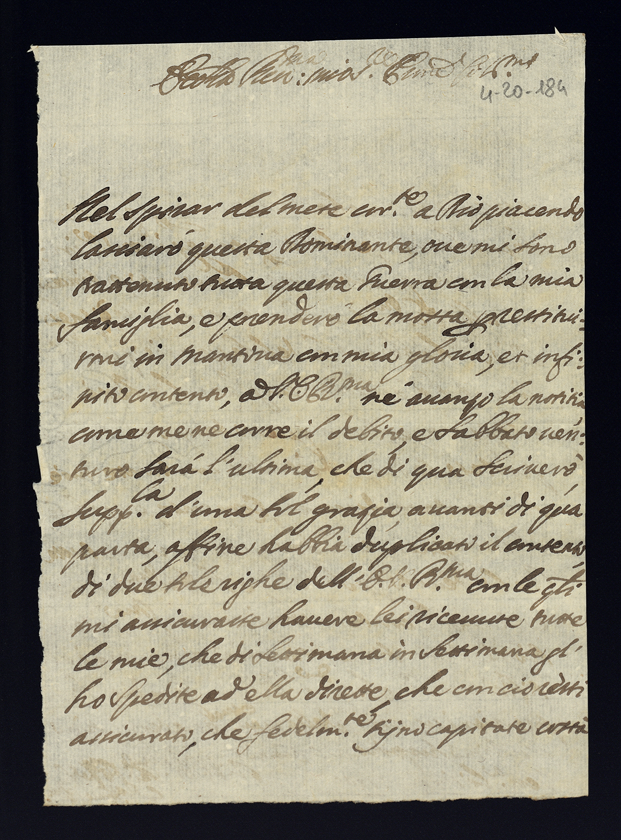 Ecc.za Rev.ma: mio S.re
4-20-184
Nel spirar del mese corr.te a Dio piacendo
lasciarò questa Dominante, ove mi sono
trattenuto tutta questa Guerra con la mia
famiglia, e prenderò la mossa p restitui:
rmi in Mantova con mia gloria, et infi:
nito contento, ad V. E. R.ma né avanzo la notitia
come me ne corre il debito, e Sabbato ven:
turo sarà l'ultima, che di qua scriverò,
supp.la d'una tal grazia, avanti di qua
parta, affine habbia duplicato il contento
di due sole righe dell' E. V. R.ma con le q.li
mi assicurasse havere lei ricevute tutte
le mie, che di settimana in settimana gl'
ho spedite ad ella dirette, che con ciò resti
assicurato, che fedelm.te sijno capitate costà